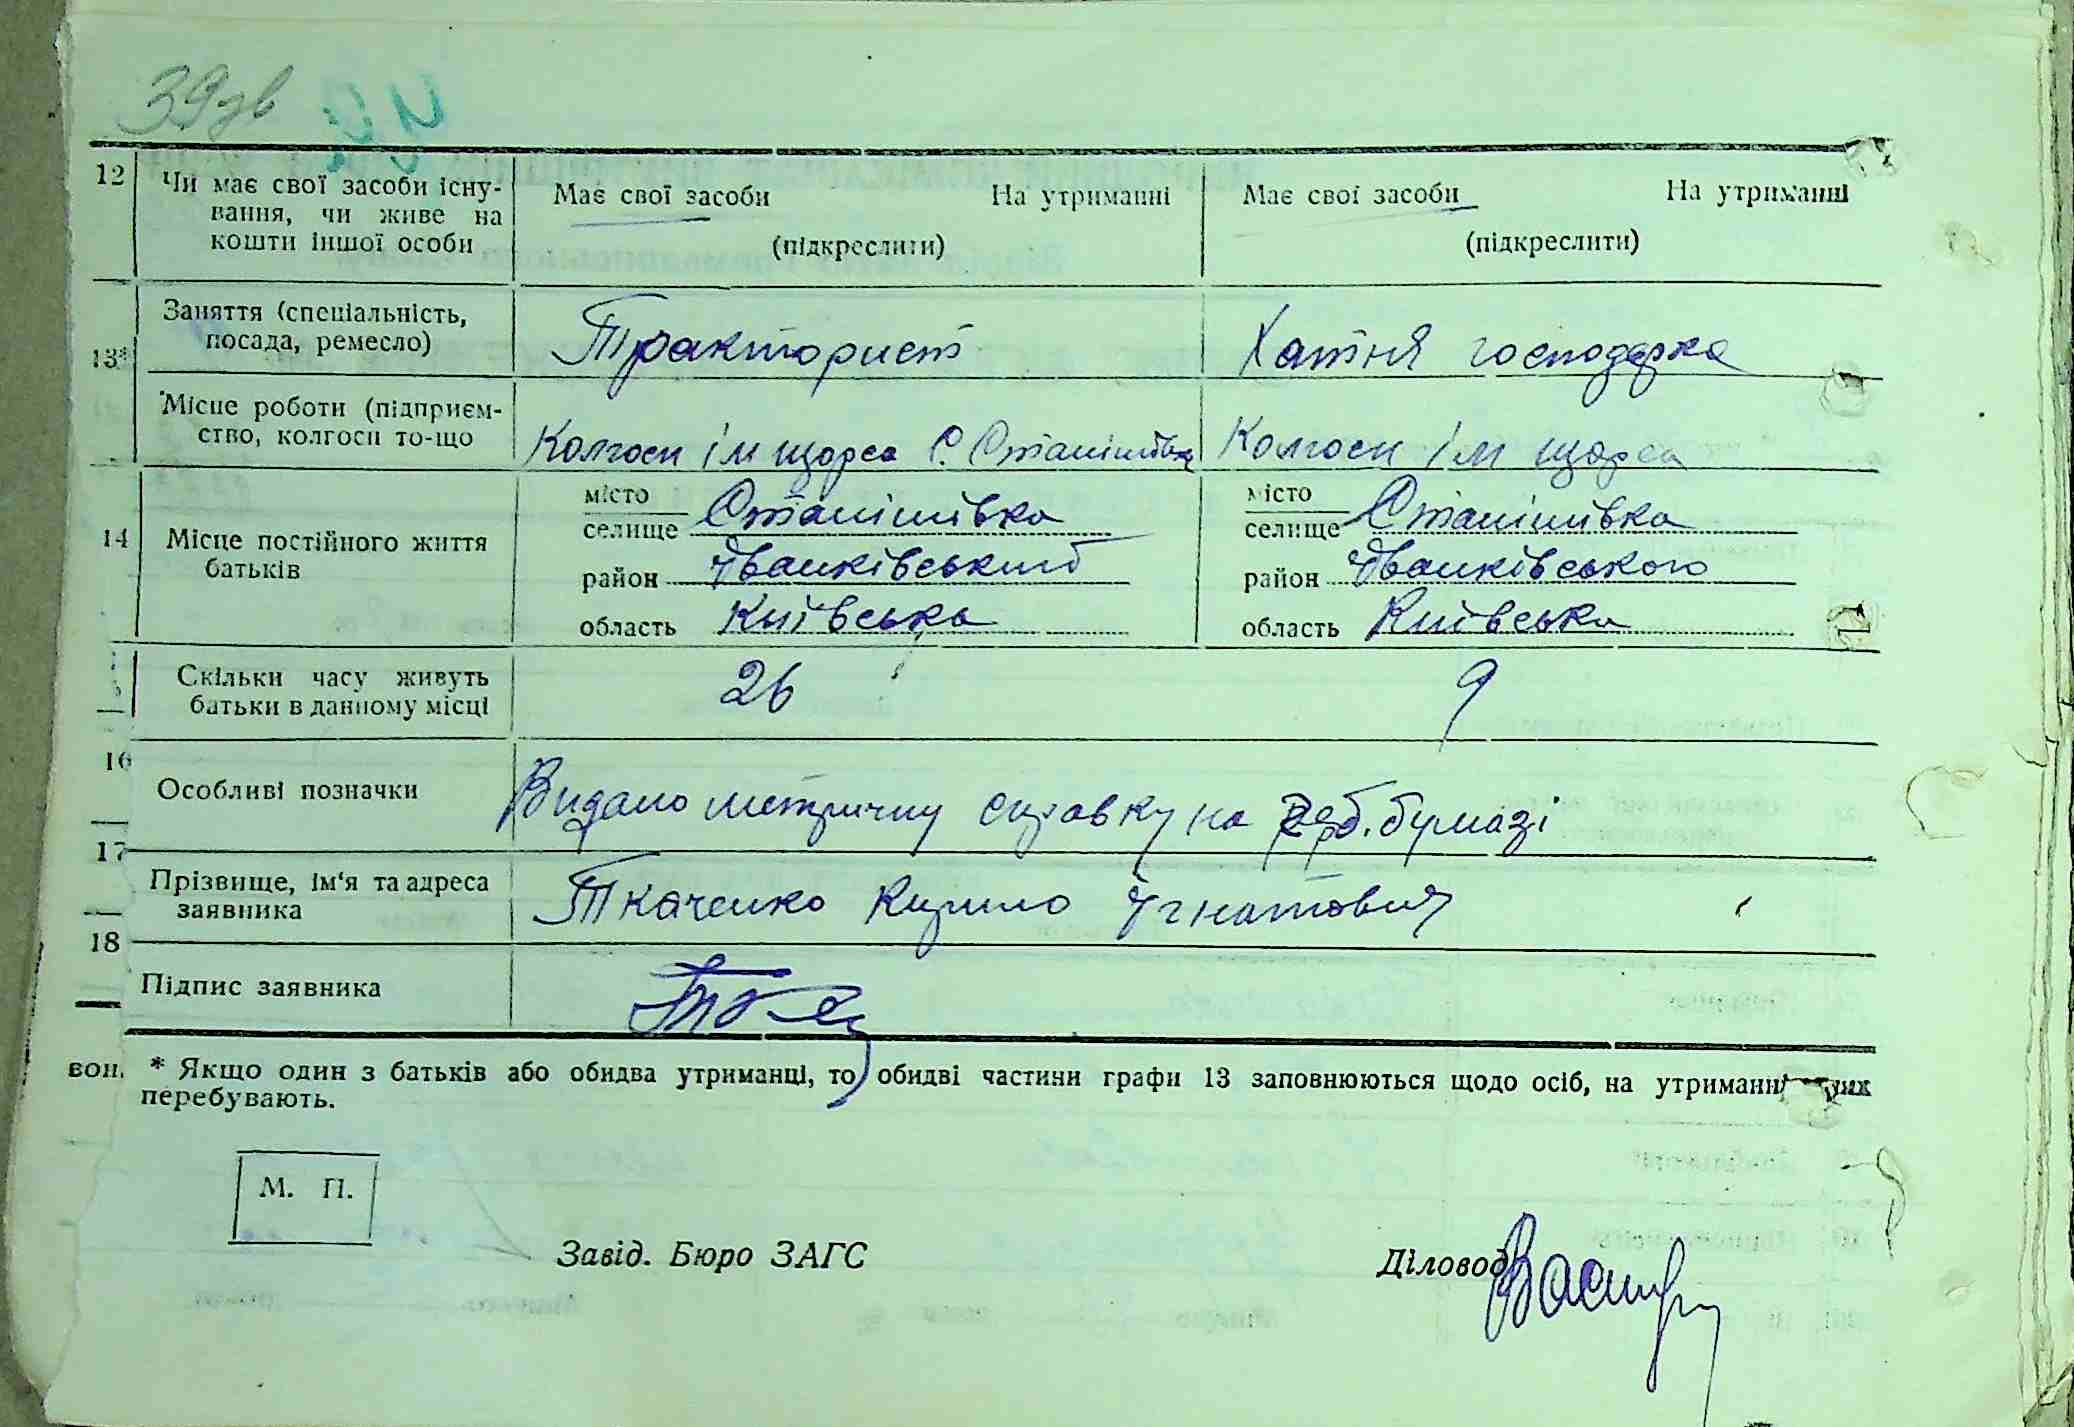 39зв
12 Чи має свої засоби існу- Має свої засоби На утриманні Має свої засоби На утриманні
вання, чи живе на
кошти іншої особи (підкреслити) (підкреслити)
Заняття (спеціальність,
посада, ремесло) Тракторист Хатня господарка
13*
Місце роботи (підприєм-
ство, колгосп то-що Колгосп ім щорса С. Станішівка Колгосп ім щорса
місто місто
селище Станішівка селище Станішівка
14 Місце постійного життя
батьків район Іванківський район Іванківського
область Київська область Київська
Скільки часу живуть
батьки в данному місці 26 9
16
Особливі позначки Видано метричну справку на герб. бумазі
17
Прізвище, ім'я та адреса
заявника Ткаченко Кирило Ігнатович
18
Підпис заявника
вон. * Якщо один з батьків або обидва утриманці, то обидві частини графи 13 заповнюються щодо осіб, на утриманні
перебувають.
М. П.
Завід. Бюро ЗАГС Діловод